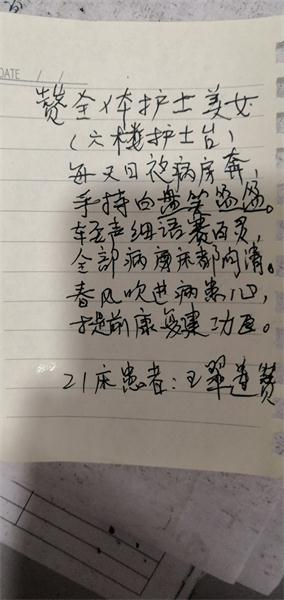 DATE / /
赞全体护士美女
(六楼护士台)
每天日夜病房奔,
手持白盘笑盈盈。
轻声细语赛百灵,
全部病房床都问清。
春风吹进病患心,
提前康复建功臣。
21床患者:王翠莲赞